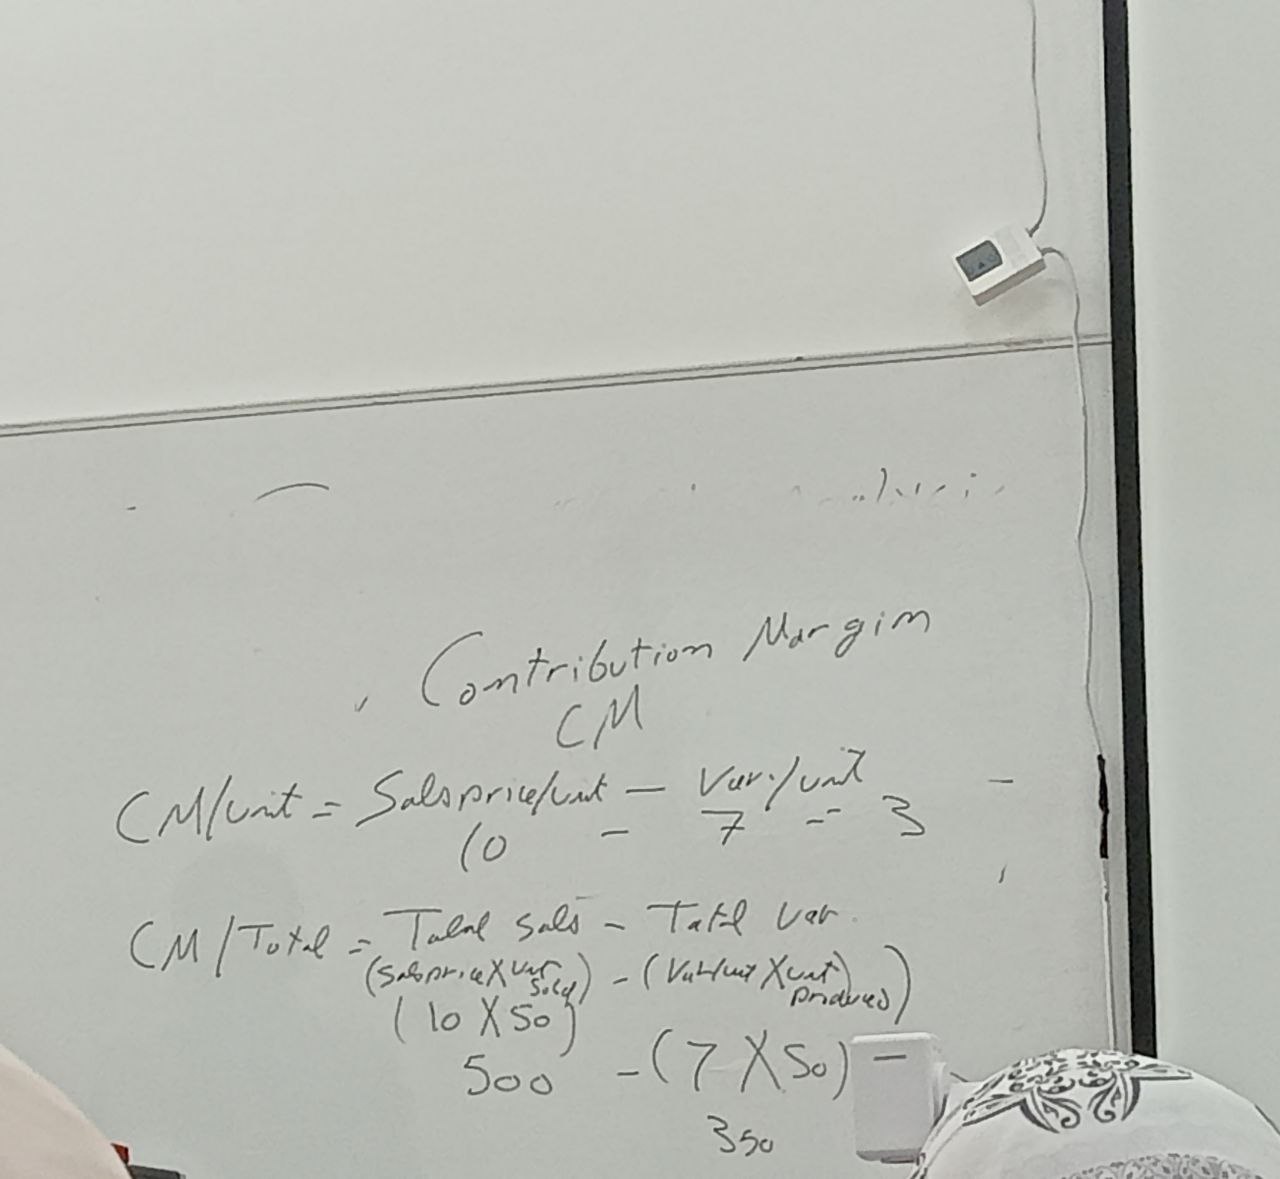 Contribution Margin
CM
CM/unit = Sals price/unit - Var./unit
10 - 7 = 3
CM/Total = Total sals - Total var.
(Sals price X unit sold) - (Var/unit X unit produced)
(10 X 50)
500 - (7 X 50) =
350